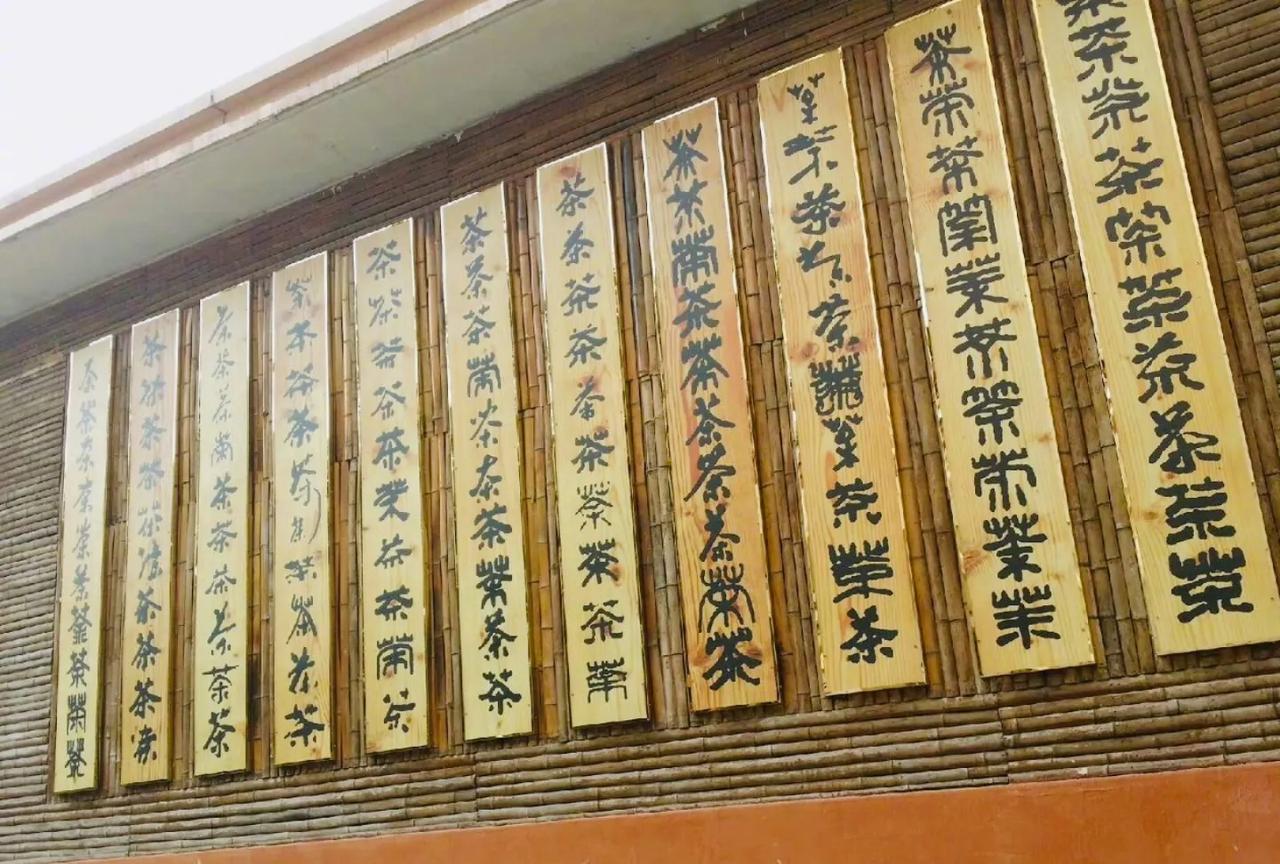 茶茶茶茶茶茶茶茶茶茶
茶茶茶茶茶茶茶茶茶茶
茶茶茶茶茶茶茶茶茶茶
茶茶茶茶茶茶茶茶茶茶
茶茶茶茶茶茶茶茶茶茶
茶茶茶茶茶茶茶茶茶茶
茶茶茶茶茶茶茶茶茶茶
茶茶茶茶茶茶茶茶茶茶
茶茶茶茶茶茶茶茶茶茶
茶茶茶茶茶茶茶茶茶茶
茶茶茶茶茶茶茶茶茶茶